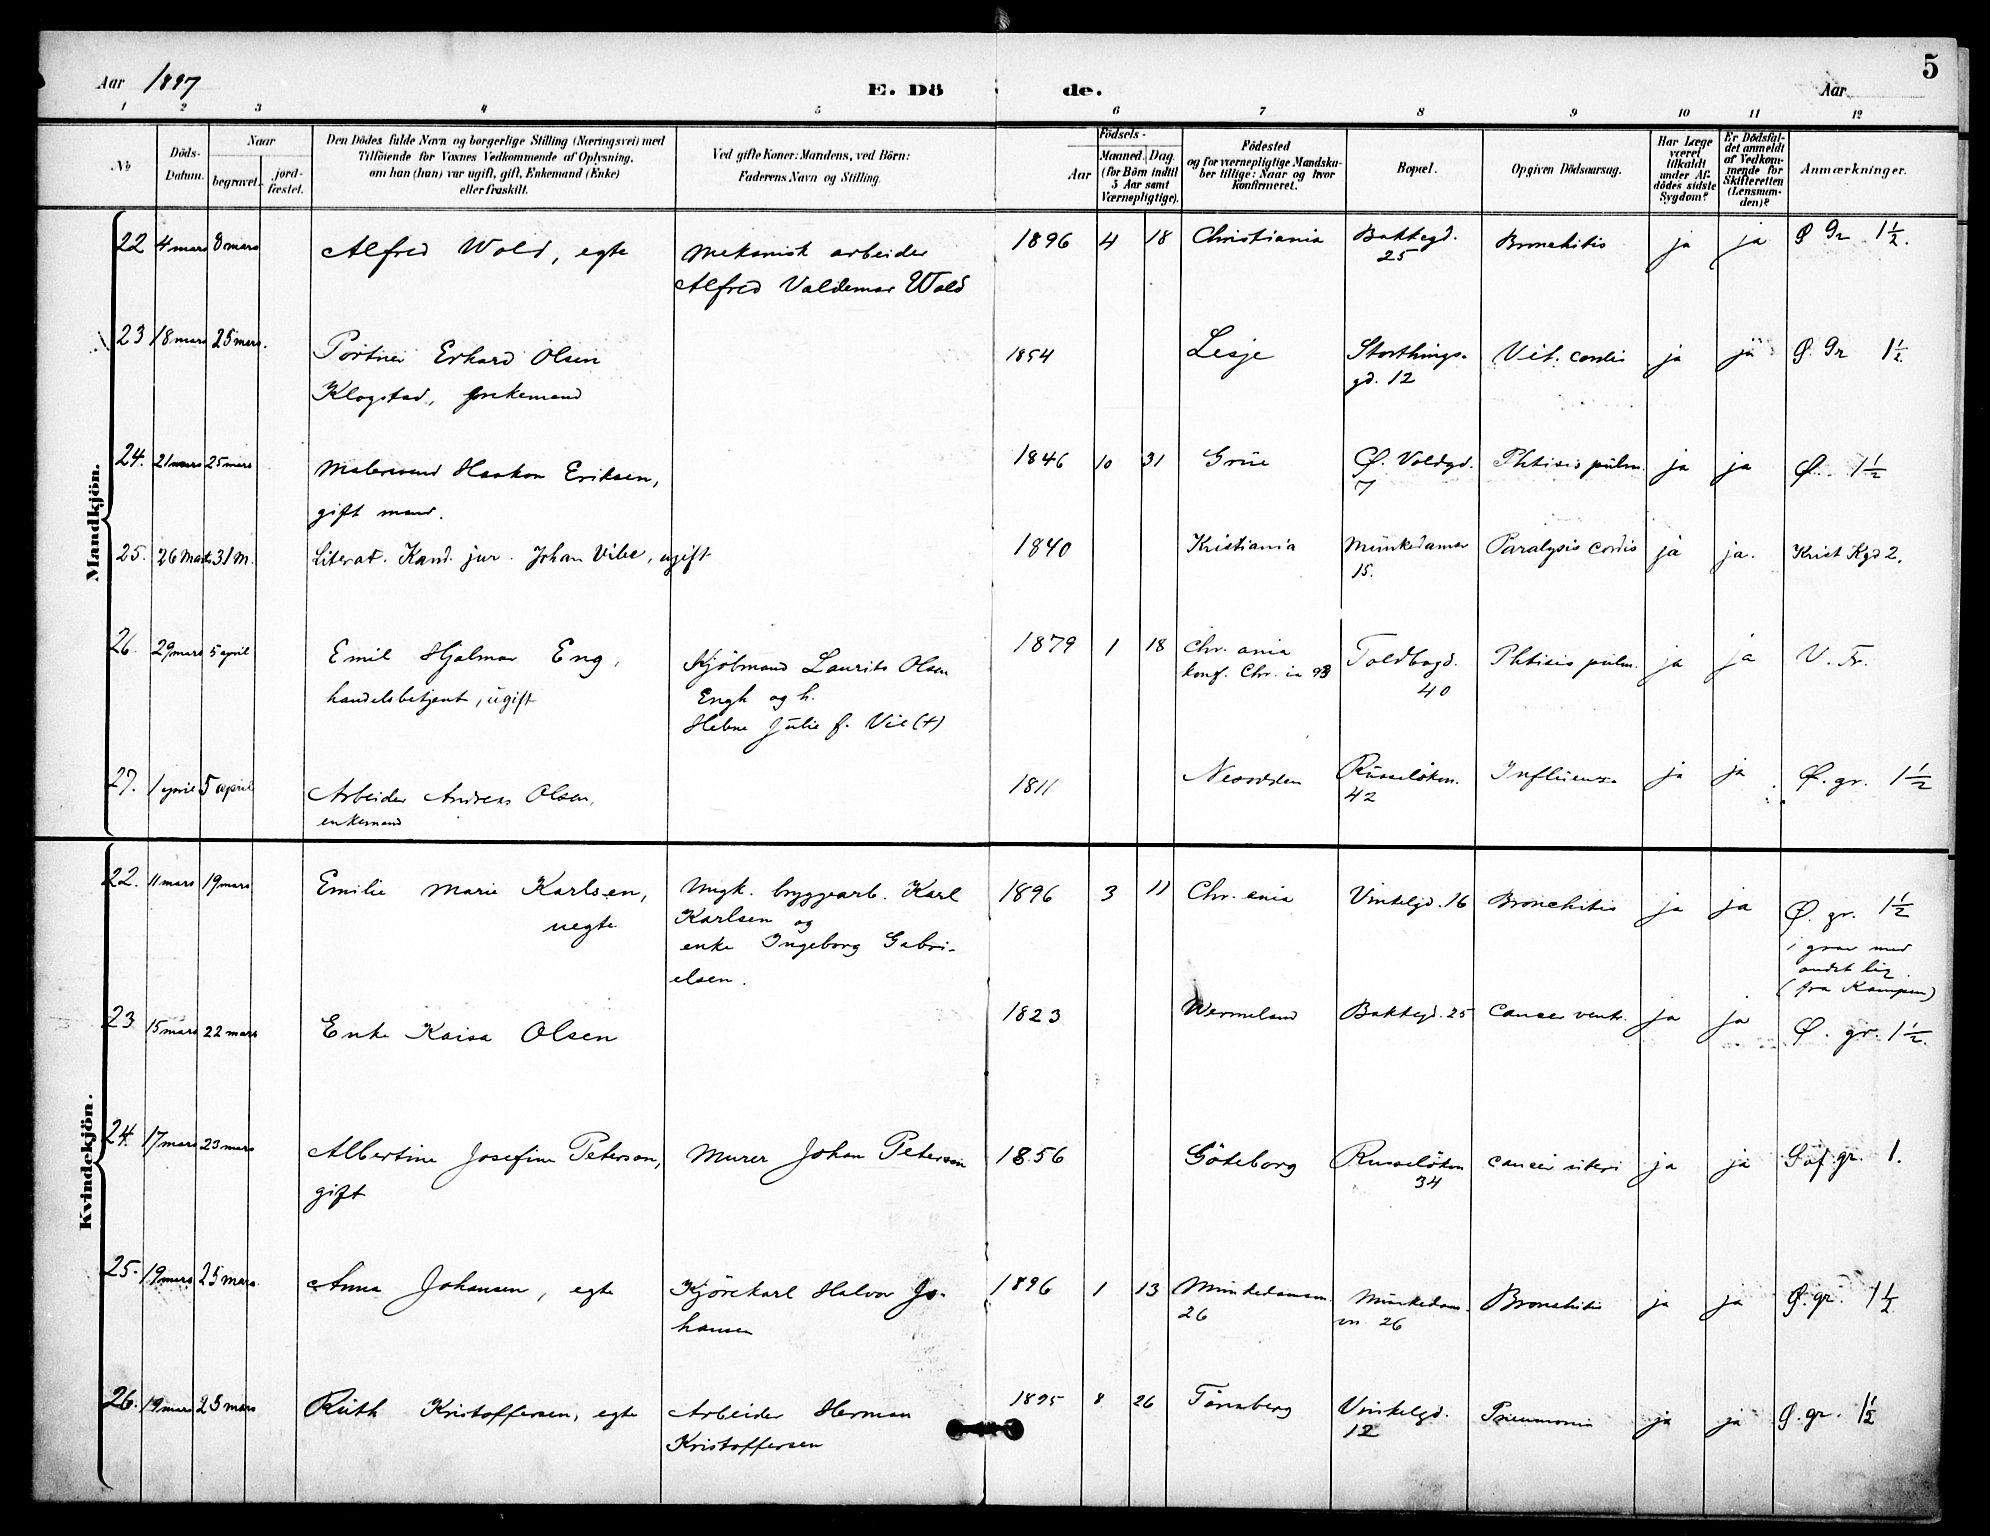 5
Aar 1897 E. Dö de. Aar
1 2 3 4 5 6 7 8 9 10 11 12
No
Döds-Datum.
Naar
begravet. jord-fæstet.
Den Dödes fulde Navn og borgerlige Stilling (Næringsvei) med
Tilföiende for Voxnes Vedkommende af Oplysning,
om han (hun) var ugift, gift, Enkemand (Enke)
eller fraskilt.
Ved gifte Koner: Mandens, ved Börn:
Faderens Navn og Stilling.
Födsels-
Aar Maaned. Dag.
(for Börn indtil
5 Aar samt
Værnepligtige).
Födested
og for værnepligtige Mandska-
ber tillige: Naar og hvor
konfirmeret.
Bopæl.
Opgiven Dödsaarsag.
Har Læge
været
tilkaldt
under Af-
dödes sidste
Sygdom?
Er Dödsfal-
det anmeldt
af Vedkom-
mende for
Skifteretten
(Lensman-
den)?
Anmærkninger.
Mandkjön.
22 4 mars 8 mars Alfred Wold, egte Mekanisk arbeider 1896 4 18 Christiania Bakkegd. Bronchitis ja ja Ø Gr 1 1/2.
Alfred Valdemar Wold 25
23 18 mars 25 mars. Portner Erhard Olsen 1854 Lesje Storthings- Vit. cordis ja ja Ø. Gr 1 1/2
Klogstad, enkemand gd. 12
24. 21 mars 25 mars Malersvend Haakon Eriksen, 1846 10 31 Grue Ø. Voldgd. Phtisis pulm. ja ja Ø. 1 1/2
gift mand. 7
25. 26 Marts 31 M. Literat. Kand. jur. Johan Vibe, ugift 1840 Kristiania Munkedamsv Paralysis cordis ja ja. Krist Kgd 2.
15.
26. 29 mars 5 april Emil Hjalmar Eng, Kjöbmand Laurits Olsen 1879 1 18 Chr. ania Toldbogd. Phtisis pulm. ja ja V. Fr.
handelsbetjent, ugift Engh og h. konf. Chr. ia 93 40
Helene Julie f. Vie (+)
27. 1 april 5 april Arbeider Andreas Olsen, 1811 Nesodden Russelökvn. Influenza ja ja Ø. gr. 1 1/2
enkemand 42
Kvindekjön.
22. 11 mars 19 mars Emilie Marie Karlsen, Ungk. bryggearb. Karl 1896 3 11 Chr. ania Vinkelgd. 16 Bronchitis ja ja Ø. gr. 1 1/2
uegte Karlsen og i grav med
enke Ingeborg Gabri- andet lig.
elsen. (fra Kampen)
23 15 mars 22 mars Enke Kaisa Olsen 1823 Wermeland Bakkegd. 25 Cancer ventr. ja ja Ø. gr. 1 1/2.
24. 17 mars 23 mars Albertine Josefine Peterson, Murer Johan Peterson 1856 Göteborg Russelökvn Cancer uteri ja ja gr. 1.
gift 34
25. 19 mars 25 mars. Anna Johansen, egte Kjörekarl Halvor Jo- 1896 1 13 Munkedamsvn. Munkedams- Bronchitis ja ja Ø. gr. 1 1/2
hansen 26 vn. 26
26. 19 mars 25 mars Ruth Kristoffersen, egte Arbeider Herman 1895 8 26 Tönsberg Vinkelgd. Pneumonia ja ja Ø. gr. 1 1/2
Kristoffersen 12